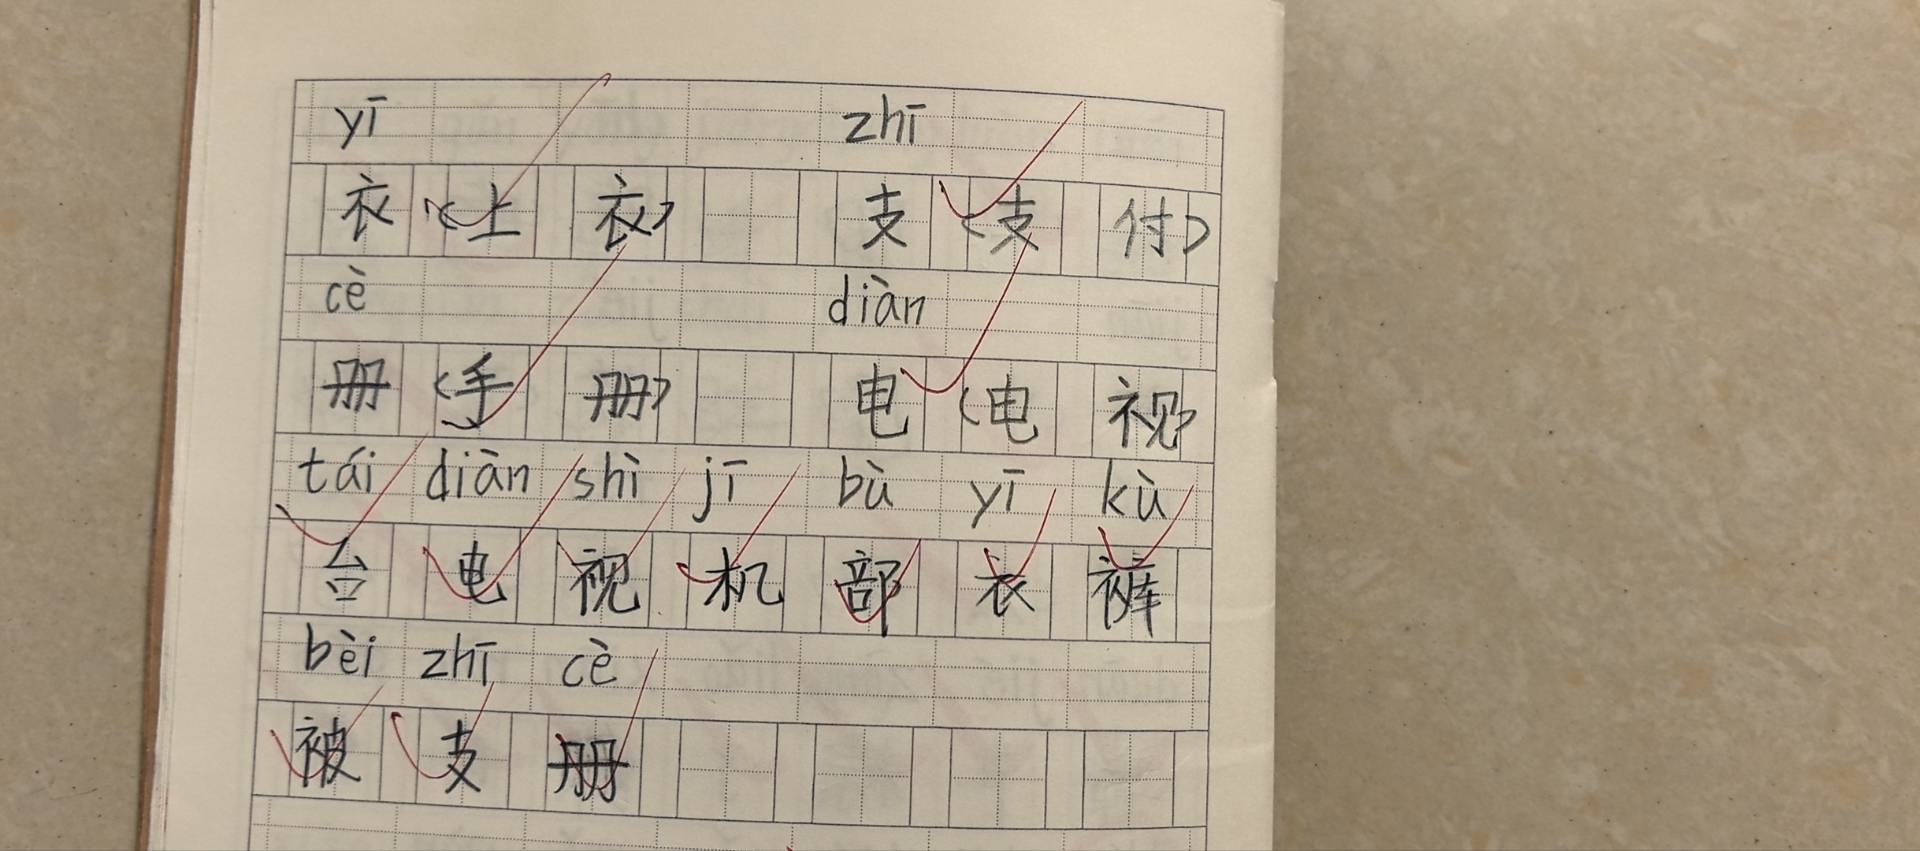 yī zhī
衣（上衣） 支（支付）
cè diàn
册（手册） 电（电视）
tái diàn shì jī bù yī kù
台 电 视 机 部 衣 裤
bèi zhī cè
被 支 册